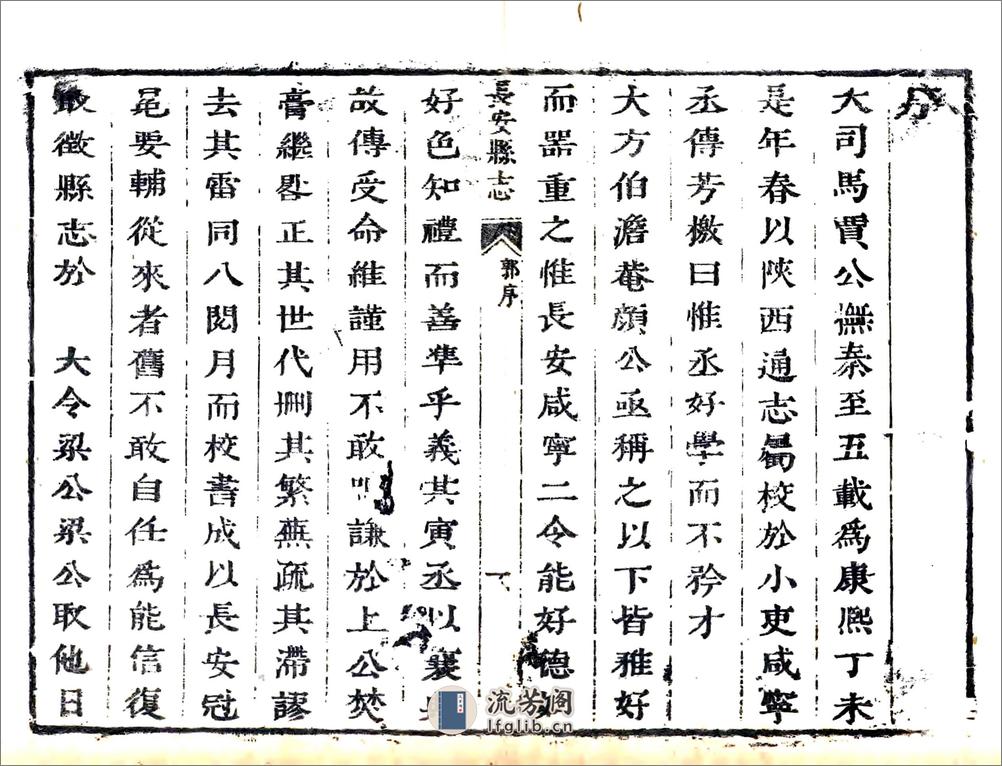 序
大司馬賈公撫秦至五載為康熙丁未
是年春以陝西通志屬校於小吏咸寧
丞傳芳檄曰惟丞好學而不矜才
大方伯澹菴顏公亟稱之以下皆雅好
而器重之惟長安咸寧二令能好德如
長安縣志 郭序 一
好色知禮而善準乎義其寅丞以襄
故傳受命維謹用不敢叫謙於上公焚
膏繼晷正其世代刪其繁蕪疏其滯謬
去其雷同八閱月而校書成以長安冠
邑要輔從來者舊不敢自任為能信復
敢徵縣志於 大令梁公梁公取他日
流芳阁
lfglib.cn